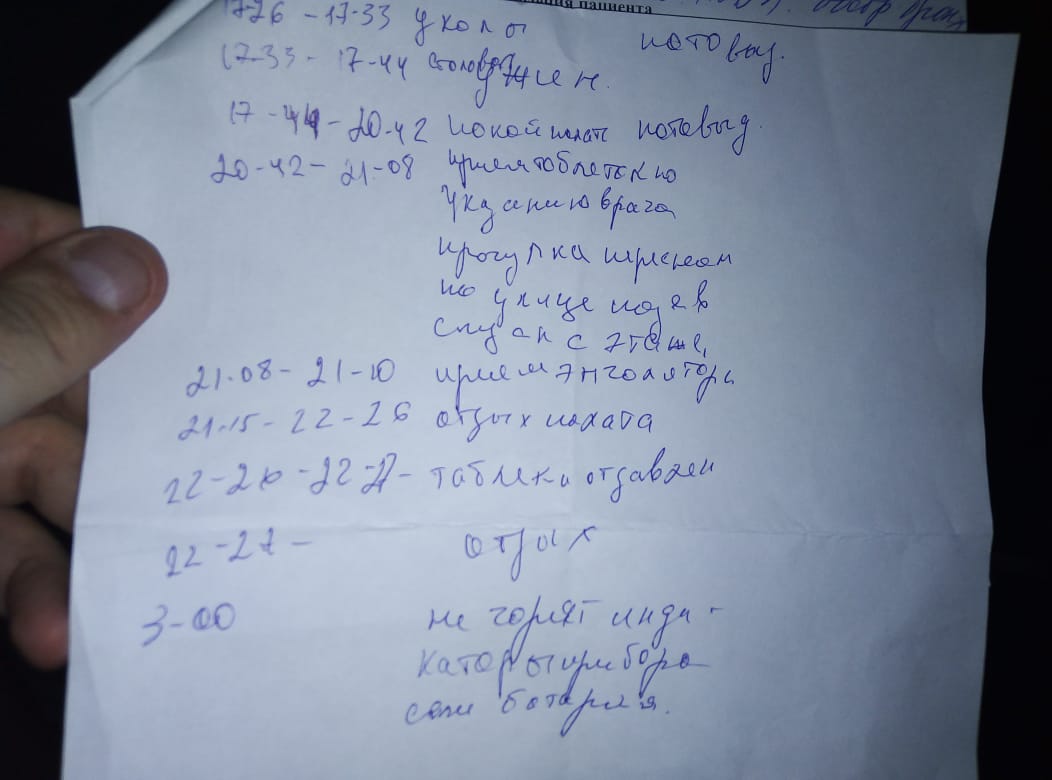 пациента
17-26 - 17-33 уколы
17-33 - 17-44 столовая ужин.
17-44 - 20-42 покой палате
20-42 - 21-08 прием таблеток по
указанию врача
прогулка
по улице подъ в
спуск с этаже,
21-08 - 21-10 прием энголятора
21-15 - 22-26 отдых палата
22-26 - 22-27 - таблеки от давлен
22-27 - отдых
3-00 не горят инди-
каторы прибора
сели ботарея.